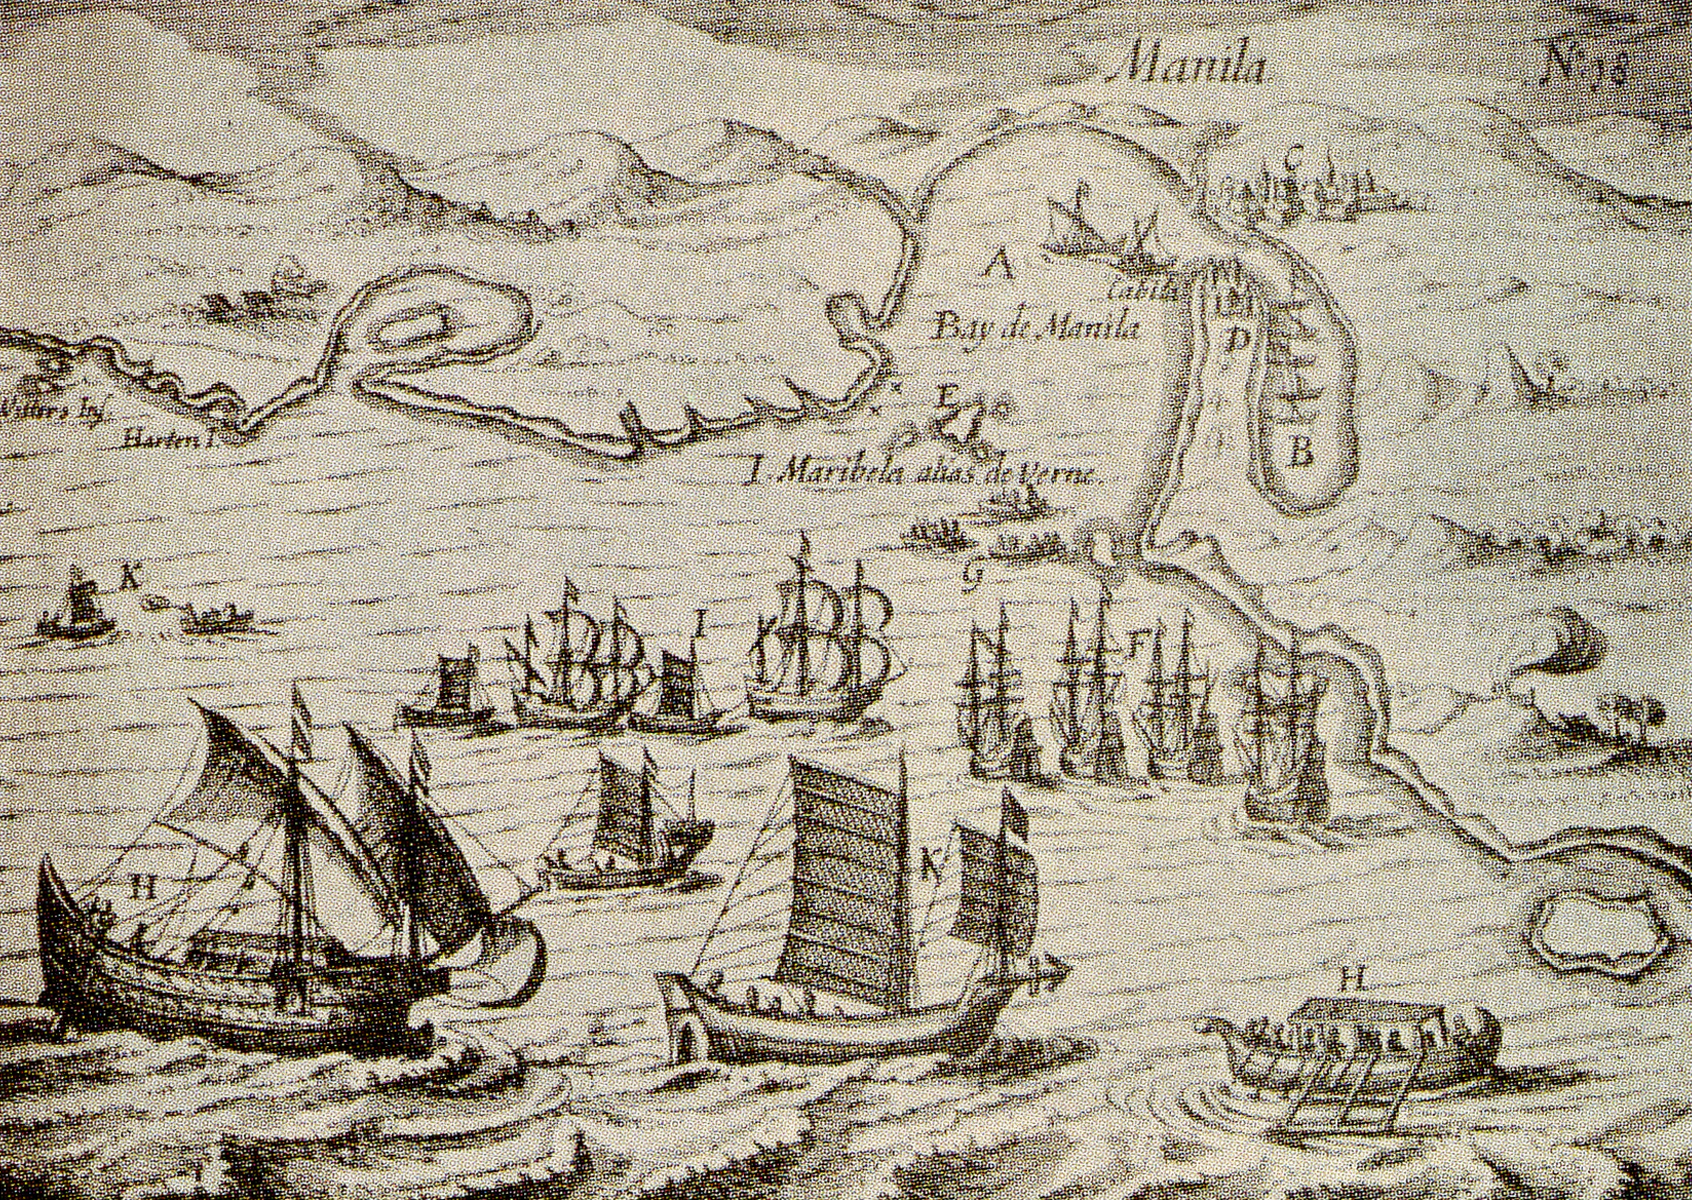 Manila
No 18
C
A
Cabita
Bay de Manila
D
E
Witters Inf.
Harten I.
B
I. Maribela alias de Verne.
K
G
I
F
K
H
H